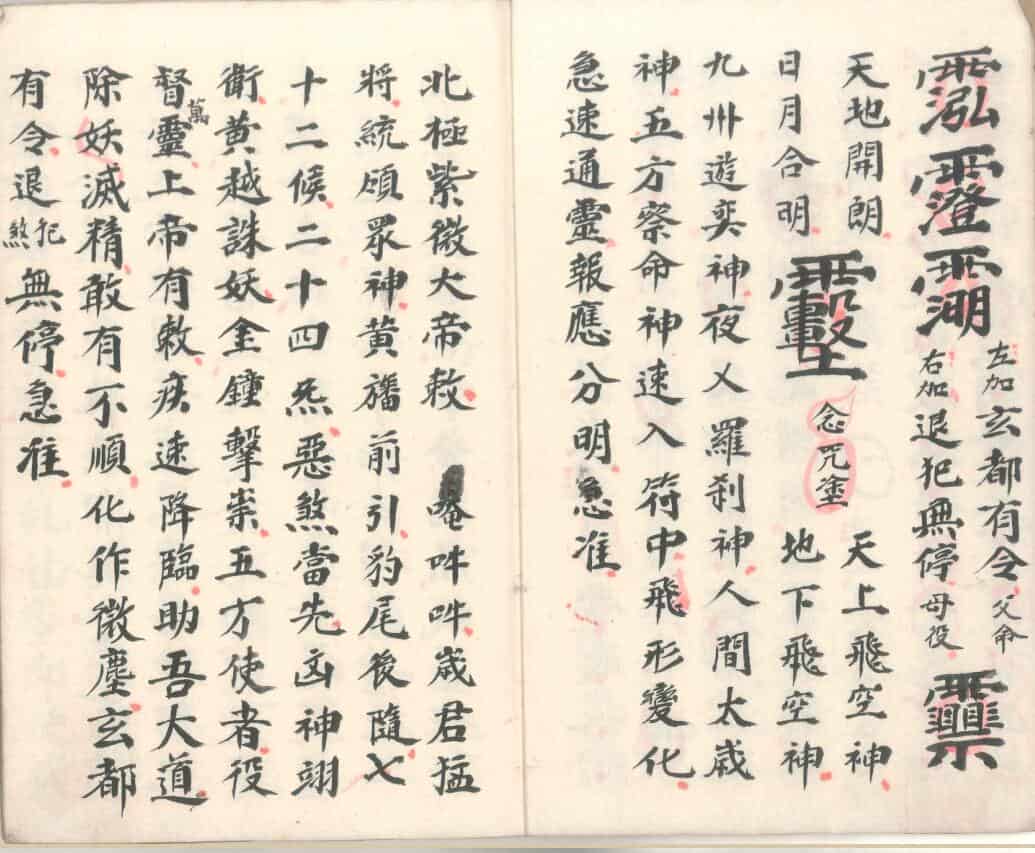 左加玄都有令父命
右加退犯無停母役
天地開朗
日月合明
念咒塗
天上飛空神
地下飛空神
九州遊奕神夜乂羅刹神人間太歲
神五方察命神速入符中飛形變化
急速通靈報應分明急准
北極紫微大帝敕 唵吽吽歲君猛
將統領眾神黃旛前引豹尾後隨七
十二候二十四炁惡煞當先凶神翊
衛黃越誅妖金鐘擊祟五方使者役
督萬靈上帝有敕疾速降臨助吾大道
除妖滅精敢有不順化作微塵玄都
有令退犯煞無停急准